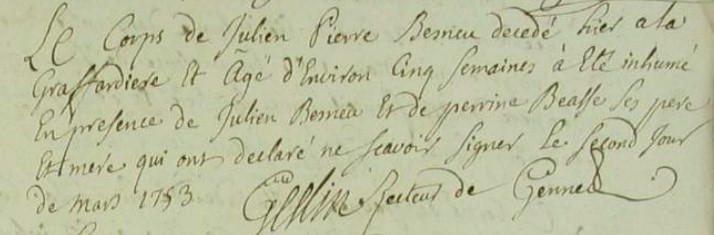 Le Corps de Julien Pierre Besneu decedé hier a la
Graffardiere Et Agé d'Environ Cinq Semaines à Eté inhumé
En presence de Julien Besneu Et de perrine Beasse Ses pere
Et mere qui ont declaré ne scavoir Signer Le Second Jour
de mars 1753 Recteur de Gennes